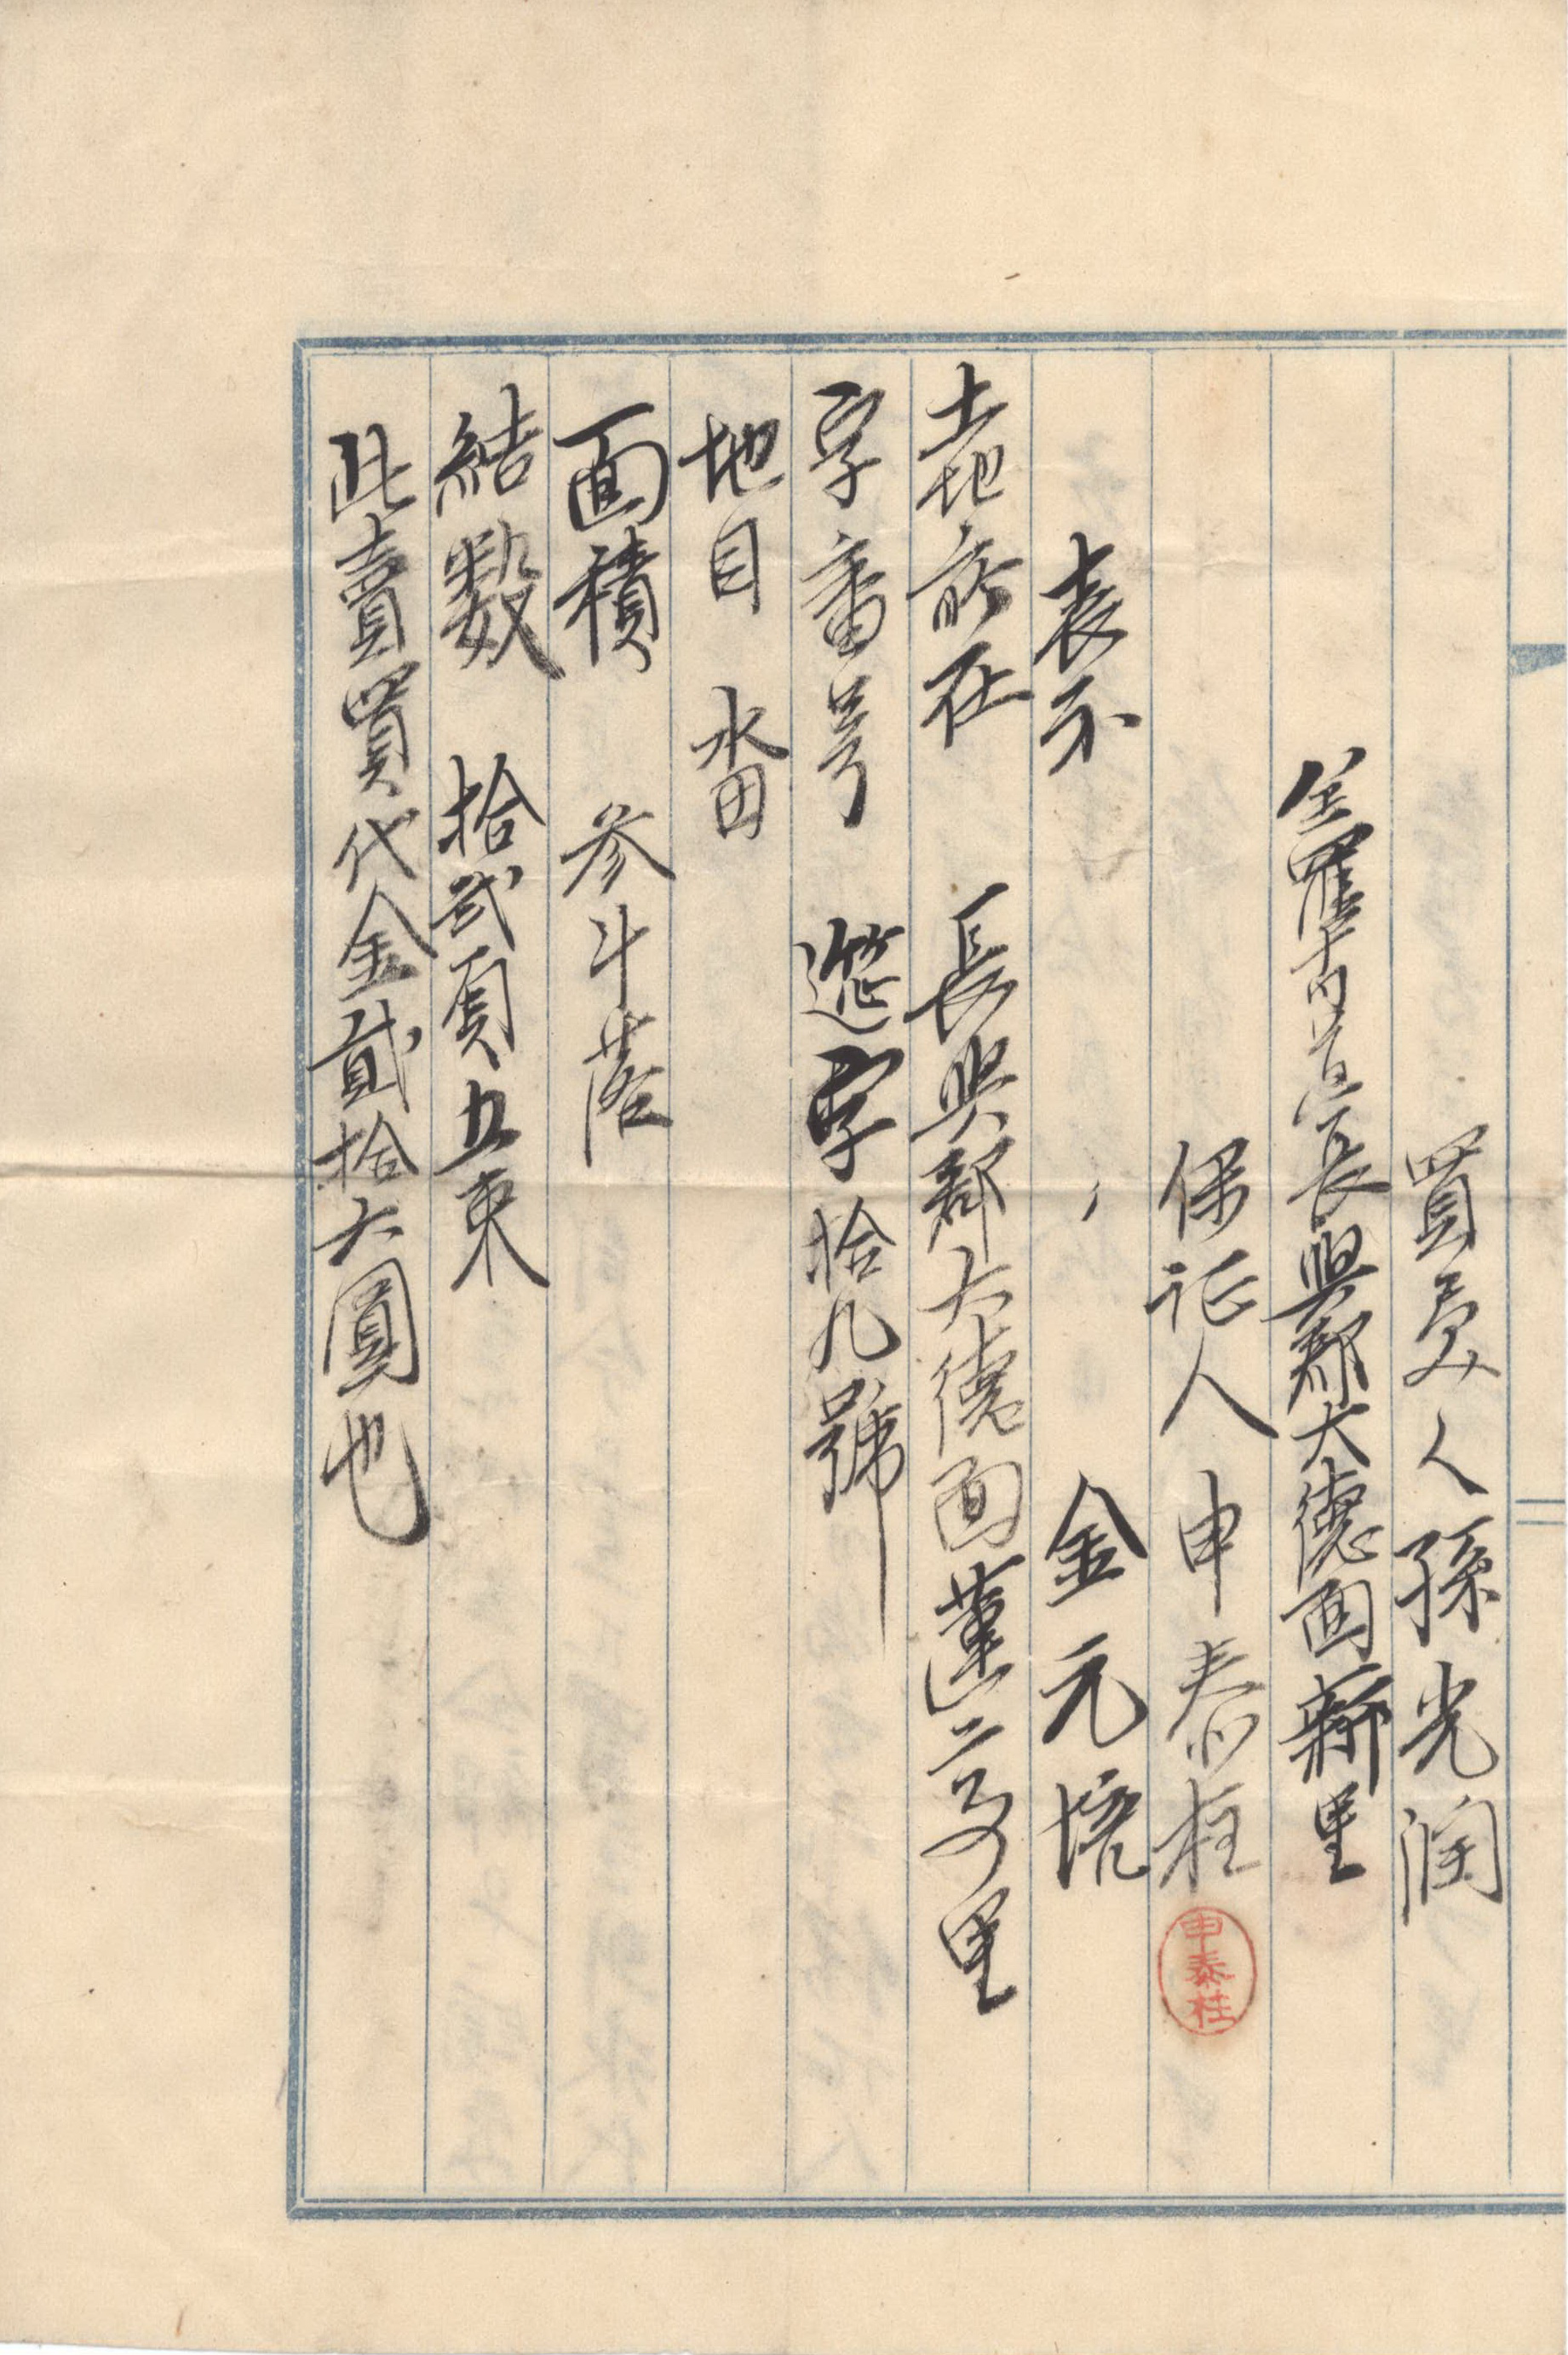 買受人 孫光潤
全羅南道長興郡大德面新里
保証人 申泰柱
申泰柱
〃 金元培
表示
土地所在 長興郡大德面蓮亭里
字番号 筵字拾九號
地目 水畓
面積 参斗落
結数 拾弐負五束
此賣買代金貳拾六圓也